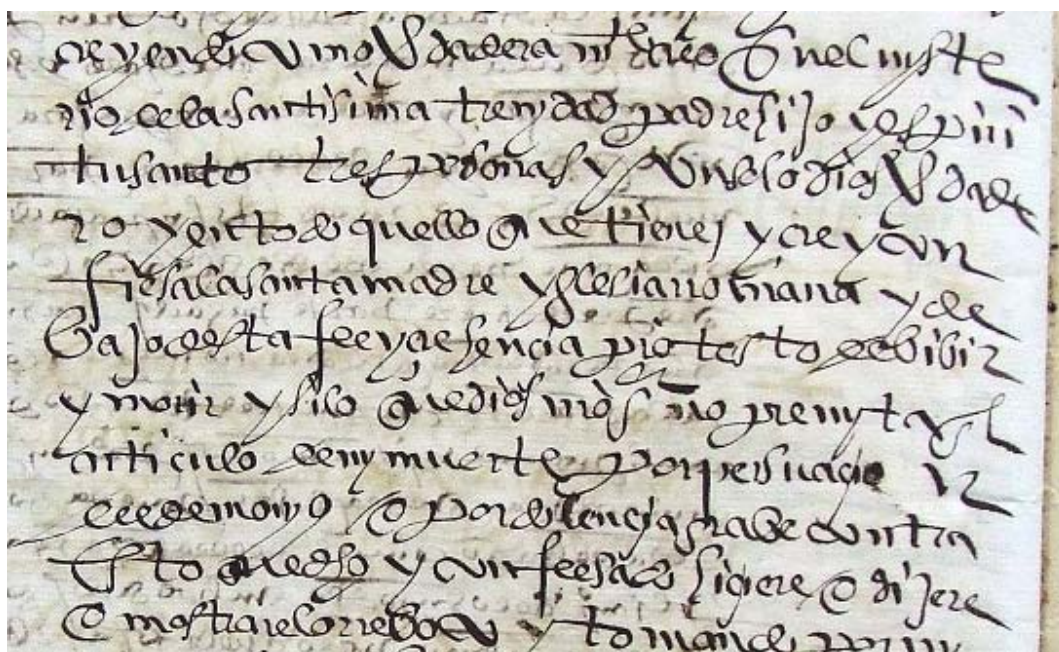 creyendo como verdadera mte creo En el miste
rio de la santisima trenydad padre hijo y espiri
tu santo tres personas y Un solo dios verdade
ro y en todo aquello que tiene y cree y con
fiesa la santa madre yglesia rromana y de
baxo desta fee y crehencia protesto de bibir
y morir y si lo que dios nro sr no permyta en el
articulo de my muerte por persuacion
del demonyo o por dolencia grave contra
Esto que dho y confesado hiziere o dijere
o mostrare lo rreboco y tomando por my